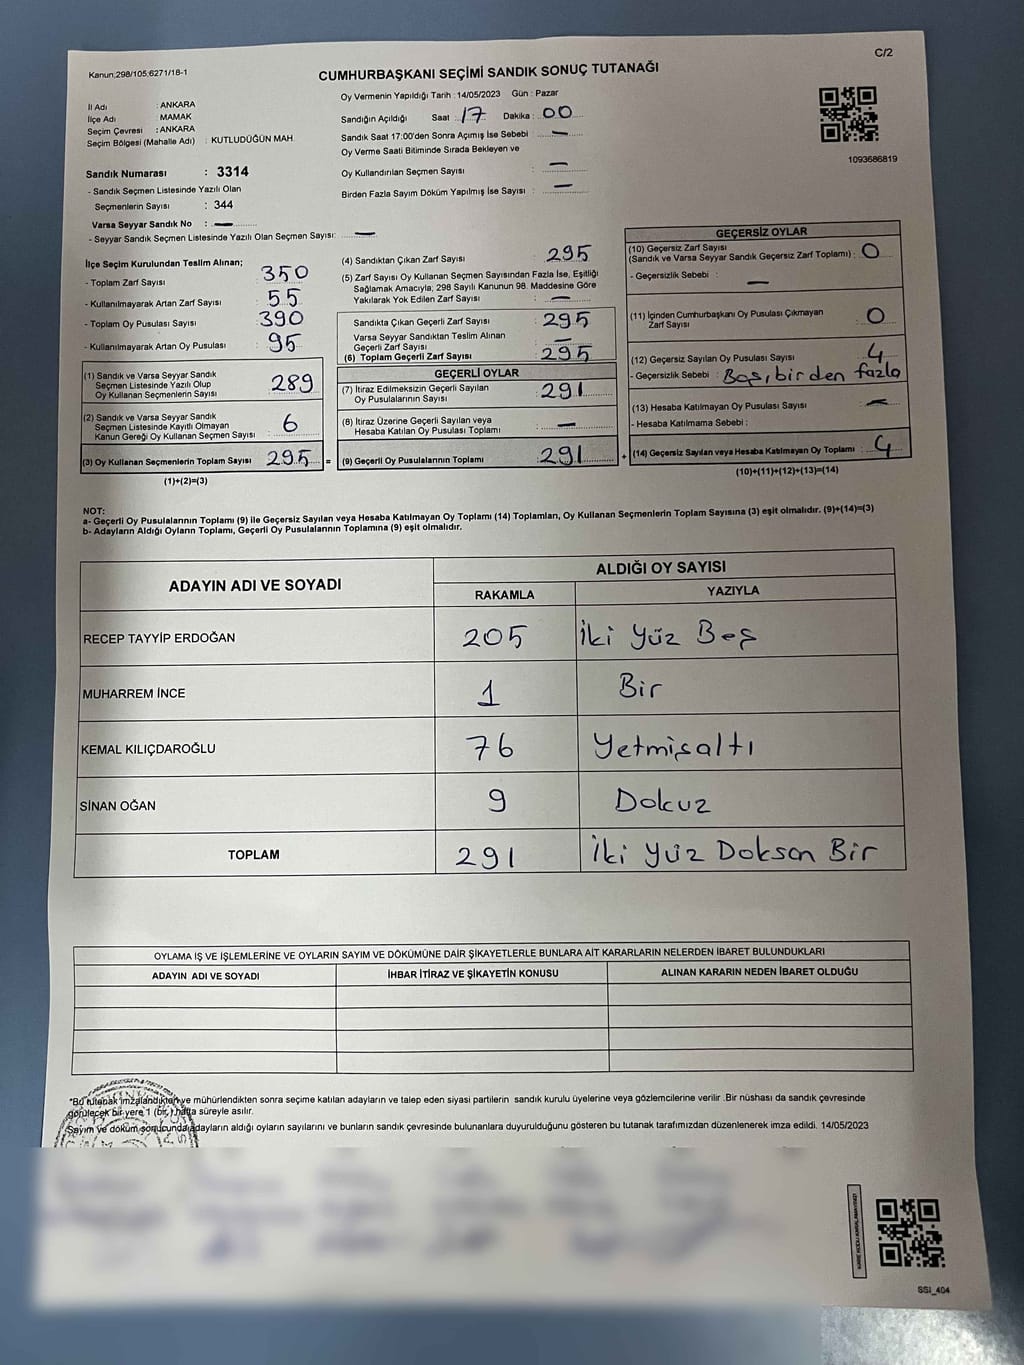 C/2
Kanun:298/105;6271/18-1
CUMHURBAŞKANI SEÇİMİ SANDIK SONUÇ TUTANAĞI
İl Adı : ANKARA
İlçe Adı : MAMAK
Seçim Çevresi : ANKARA
Seçim Bölgesi (Mahalle Adı) : KUTLUDÜĞÜN MAH.
Sandık Numarası : 3314
- Sandık Seçmen Listesinde Yazılı Olan
Seçmenlerin Sayısı : 344
Varsa Seyyar Sandık No : —
- Seyyar Sandık Seçmen Listesinde Yazılı Olan Seçmen Sayısı: —
Oy Vermenin Yapıldığı Tarih :14/05/2023 Gün : Pazar
Sandığın Açıldığı Saat : 17 Dakika : 00
Sandık Saat 17:00'den Sonra Açımış İse Sebebi : —
Oy Verme Saati Bitiminde Sırada Bekleyen ve
Oy Kullandırılan Seçmen Sayısı : —
Birden Fazla Sayım Döküm Yapılmış İse Sayısı : —
1093686819
İlçe Seçim Kurulundan Teslim Alınan;
- Toplam Zarf Sayısı : 350
- Kullanılmayarak Artan Zarf Sayısı : 55
- Toplam Oy Pusulası Sayısı : 390
- Kullanılmayarak Artan Oy Pusulası : 95
(1) Sandık ve Varsa Seyyar Sandık
Seçmen Listesinde Yazılı Olup
Oy Kullanan Seçmenlerin Sayısı : 289
(2) Sandık ve Varsa Seyyar Sandık
Seçmen Listesinde Kayıtlı Olmayan
Kanun Gereği Oy Kullanan Seçmen Sayısı : 6
(3) Oy Kullanan Seçmenlerin Toplam Sayısı : 295 =
(1)+(2)=(3)
(4) Sandıktan Çıkan Zarf Sayısı : 295
(5) Zarf Sayısı Oy Kullanan Seçmen Sayısından Fazla İse, Eşitliği
Sağlamak Amacıyla; 298 Sayılı Kanunun 98. Maddesine Göre
Yakılarak Yok Edilen Zarf Sayısı : —
Sandıkta Çıkan Geçerli Zarf Sayısı : 295
Varsa Seyyar Sandıktan Teslim Alınan
Geçerli Zarf Sayısı : —
(6) Toplam Geçerli Zarf Sayısı : 295
GEÇERLİ OYLAR
(7) İtiraz Edilmeksizin Geçerli Sayılan
Oy Pusulalarının Sayısı : 291
(8) İtiraz Üzerine Geçerli Sayılan veya
Hesaba Katılan Oy Pusulası Toplamı : —
(9) Geçerli Oy Pusulalarının Toplamı : 291 +
GEÇERSİZ OYLAR
(10) Geçersiz Zarf Sayısı
(Sandık ve Varsa Seyyar Sandık Geçersiz Zarf Toplamı) : 0
- Geçersizlik Sebebi : —
(11) İçinden Cumhurbaşkanı Oy Pusulası Çıkmayan
Zarf Sayısı : 0
(12) Geçersiz Sayılan Oy Pusulası Sayısı : 4
- Geçersizlik Sebebi : Boş, birden fazla
(13) Hesaba Katılmayan Oy Pusulası Sayısı : —
- Hesaba Katılmama Sebebi :
(14) Geçersiz Sayılan veya Hesaba Katılmayan Oy Toplamı : 4
(10)+(11)+(12)+(13)=(14)
NOT:
a- Geçerli Oy Pusulalarının Toplamı (9) ile Geçersiz Sayılan veya Hesaba Katılmayan Oy Toplamı (14) Toplamları, Oy Kullanan Seçmenlerin Toplam Sayısına (3) eşit olmalıdır. (9)+(14)=(3)
b- Adayların Aldığı Oyların Toplamı, Geçerli Oy Pusulalarının Toplamına (9) eşit olmalıdır.
ADAYIN ADI VE SOYADI
ALDIĞI OY SAYISI
RAKAMLA YAZIYLA
RECEP TAYYİP ERDOĞAN 205 İki Yüz Beş
MUHARREM İNCE 1 Bir
KEMAL KILIÇDAROĞLU 76 Yetmişaltı
SİNAN OĞAN 9 Dokuz
TOPLAM 291 İki Yüz Doksan Bir
OYLAMA İŞ VE İŞLEMLERİNE VE OYLARIN SAYIM VE DÖKÜMÜNE DAİR ŞİKAYETLERLE BUNLARA AİT KARARLARIN NELERDEN İBARET BULUNDUKLARI
ADAYIN ADI VE SOYADI İHBAR İTİRAZ VE ŞİKAYETİN KONUSU ALINAN KARARIN NEDEN İBARET OLDUĞU
"Bu tutanak imzalandıktan ve mühürlendikten sonra seçime katılan adayların ve talep eden siyasi partilerin sandık kurulu üyelerine veya gözlemcilerine verilir .Bir nüshası da sandık çevresinde
görülecek bir yere 1 (bir ) hafta süreyle asılır.
Sayım ve döküm sonucunda adayların aldığı oyların sayılarını ve bunların sandık çevresinde bulunanlara duyurulduğunu gösteren bu tutanak tarafımızdan düzenlenerek imza edildi. 14/05/2023
SSI_404